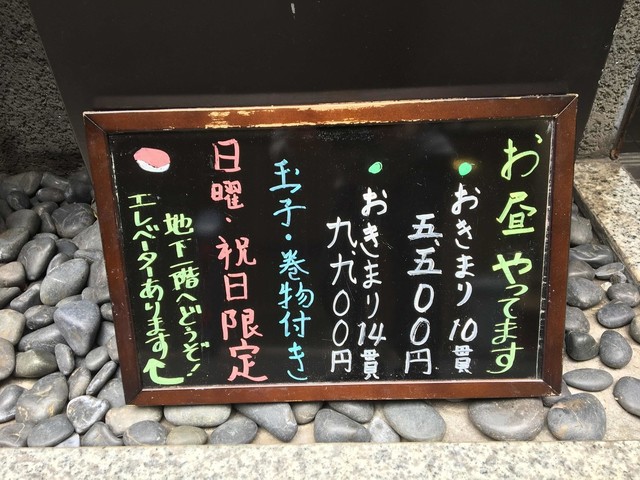 お昼やってます
おきまり10貫
五,五00円
おきまり14貫
九,九00円
玉子・巻物付き
日曜・祝日限定
地下一階へどうぞ!
エレベーターあります